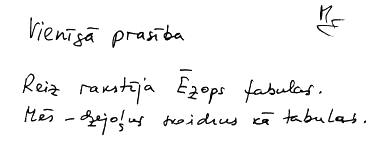 Vienīgā prasība
Reiz rakstīja Ēzops fabulas.
Mēs – dzejoļus skaidrus kā tabulas.